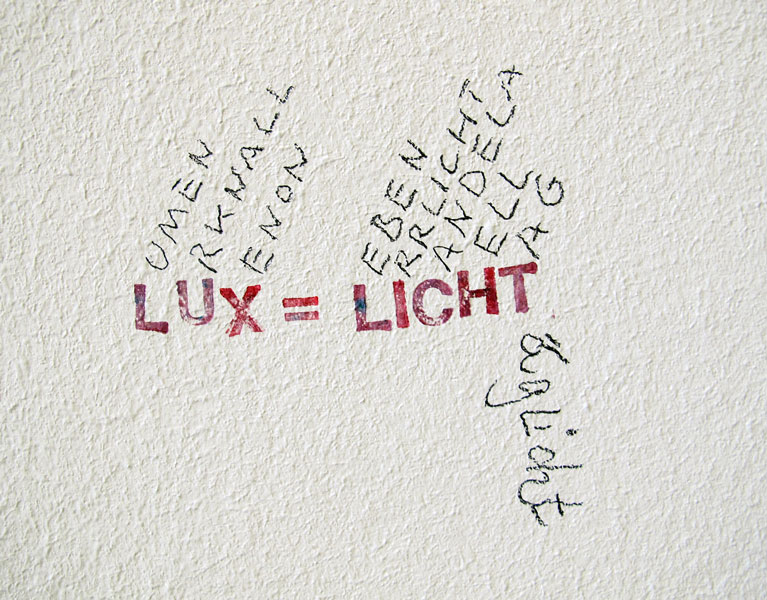 UMEN
RKNALL
ENON
EBEN
RRLICHT
ANDELA
ELL
AG
LUX = LICHT
aglicht